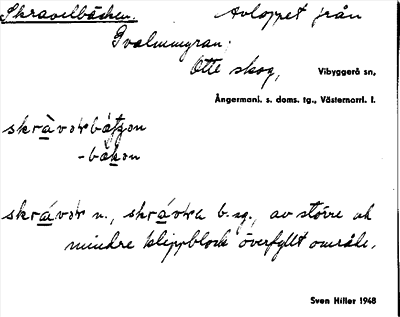 Skravelbäcken. Avloppet från
Svalmmyran;
Otte skog, Vibyggerå sn,
Ångermanl. s. doms. tg., Västernorrl. l.
skràvorbátʒon
-bákon
skrávor n., skrávra b. sg., av större ok
mindre klippblock överfyllt område.
Sven Hiller 1948